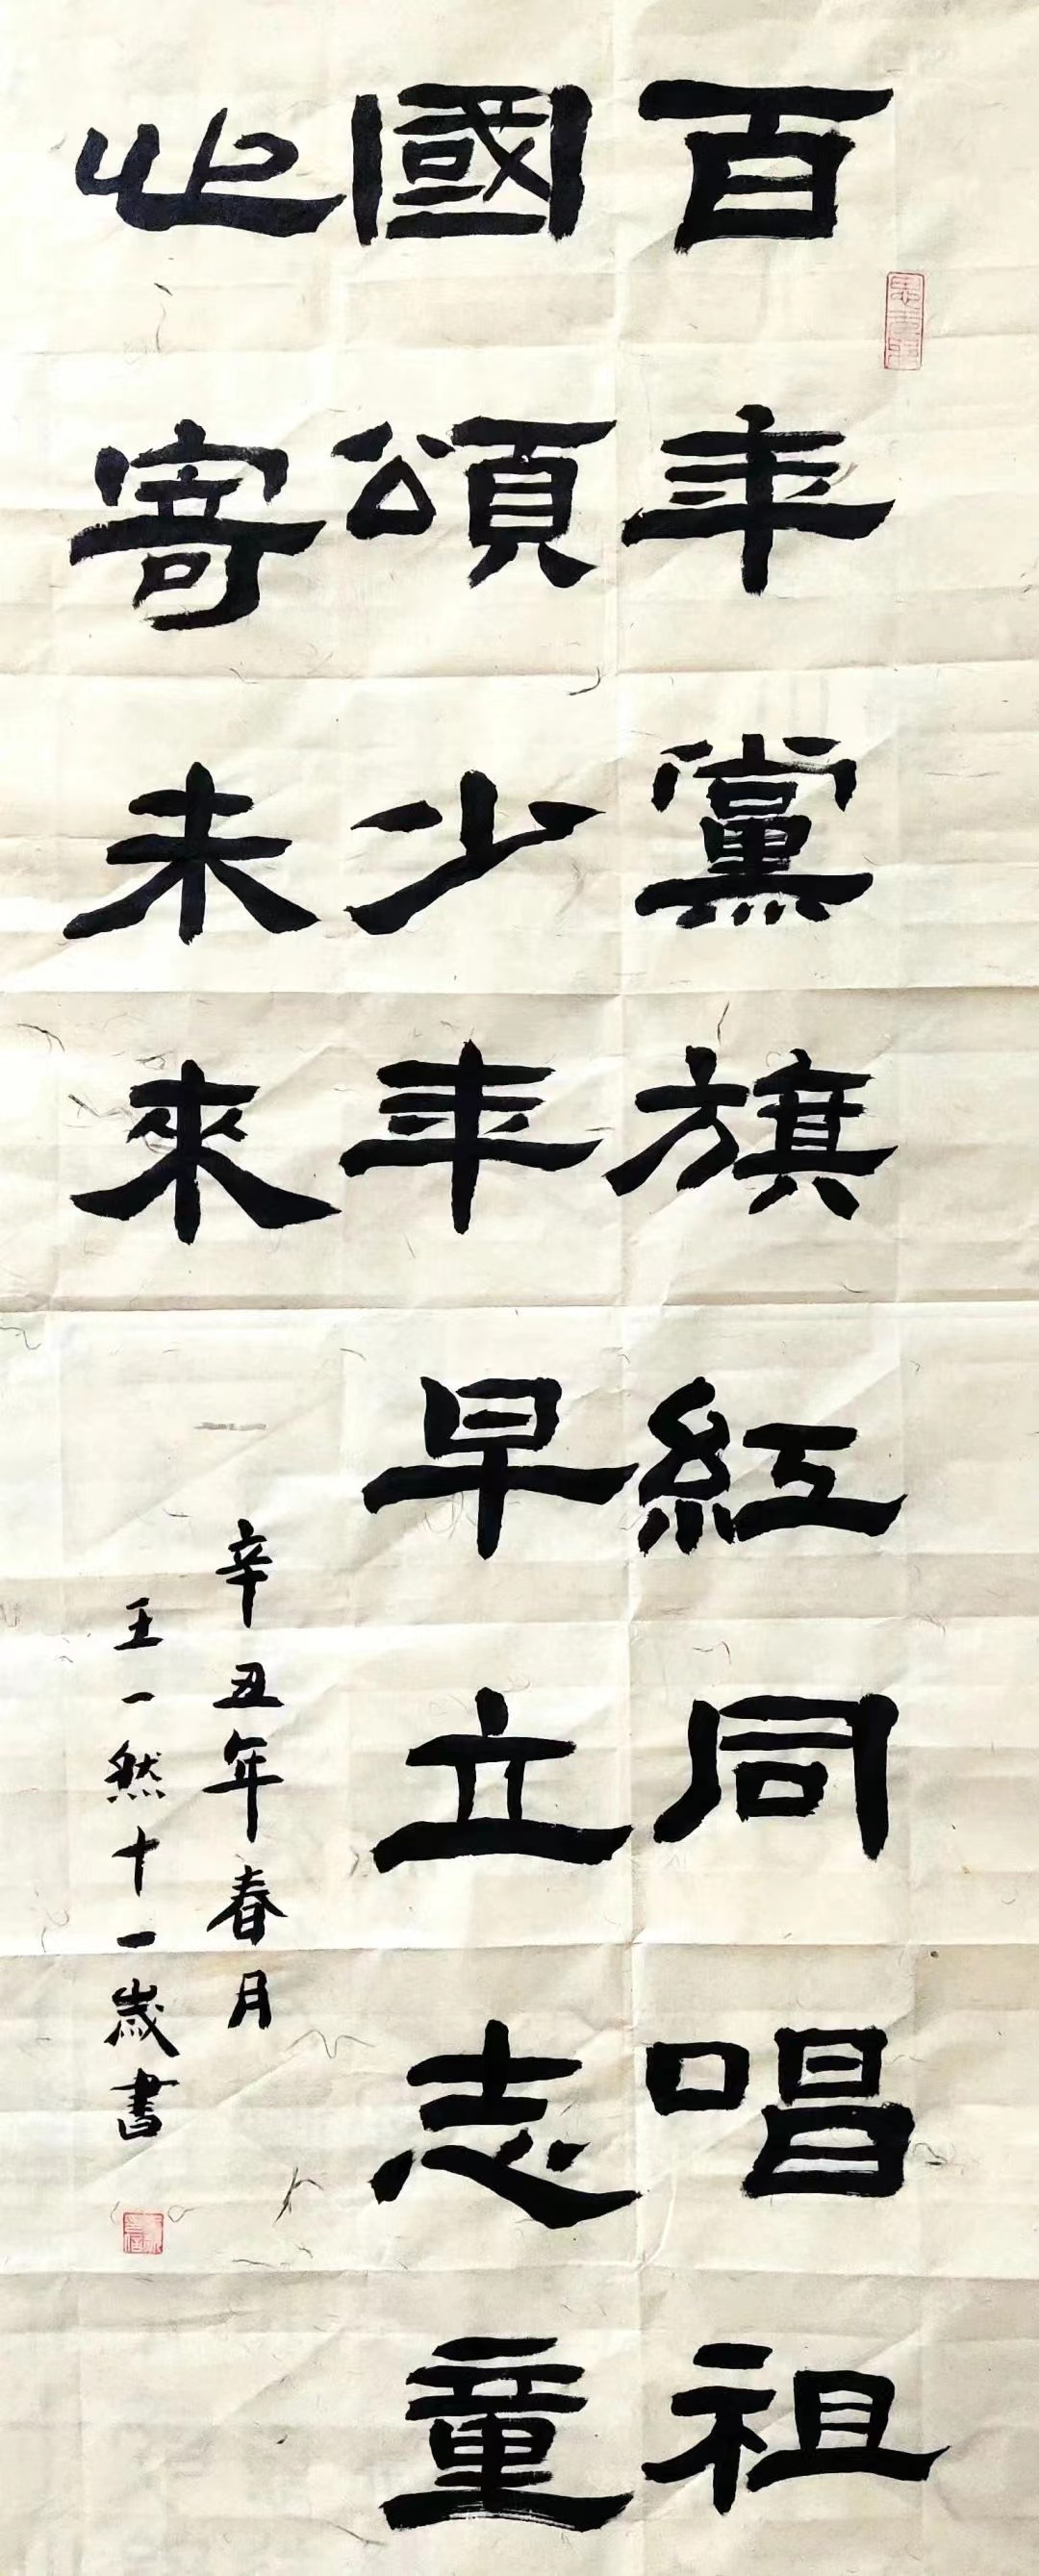 百年黨旗紅同唱祖
國頌少年早立志童
心寄未來
辛丑年春月
王一然十一歲書